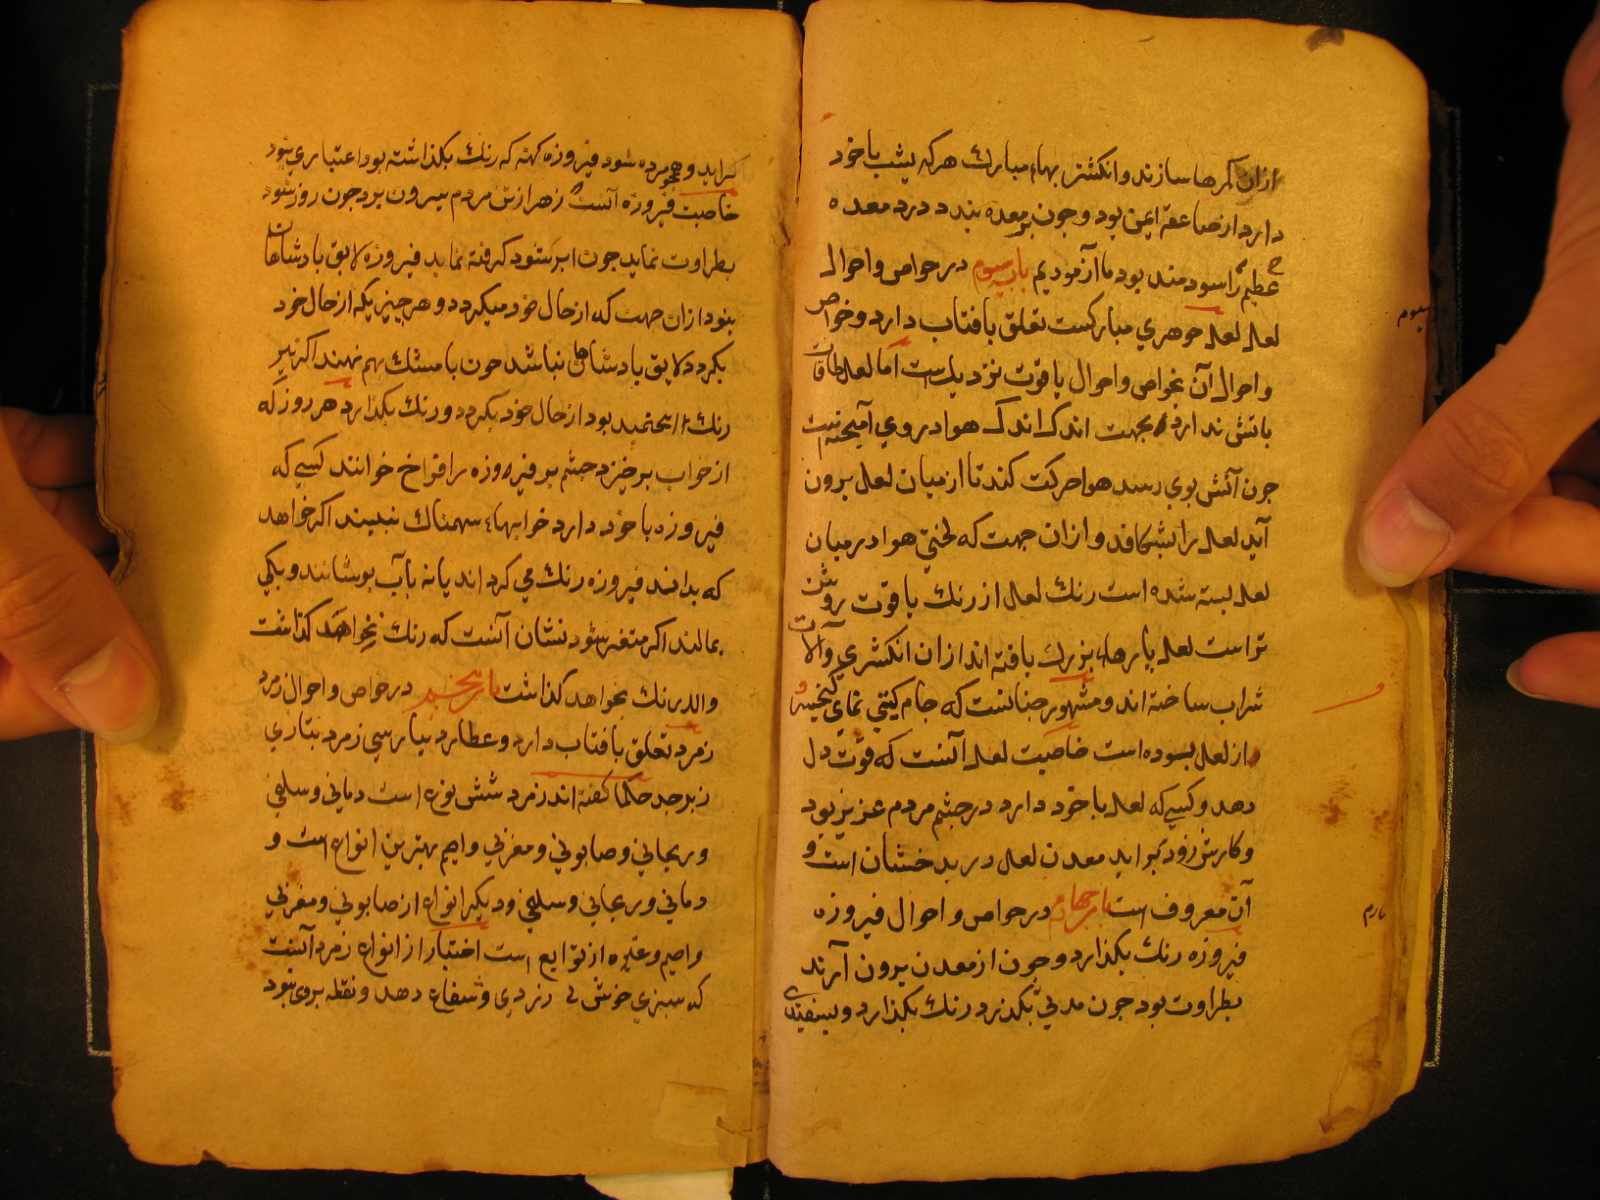 ازان کمرها سازند و انکشتر بهاء مبارک هرکه یشب با خود
دارد از صاعقه ایمن بود و چون بر معده بندد درد معده
عظیم را سودمند بود ما آزمودیم باب سیوم در خواص و احوال
لعل لعل جوهری مبارکست تعلق بافتاب دارد و خواص
و احوال آن بخواص و احوال یاقوت نزدیک است اما لعل طاقت
باتش ندارد بجهت اندک اندک هوا در وی آمیخته است
جون آتش بوی رسد هوا حرکت کند تا از میان لعل برون
آید لعل را بشکافد و ازان جهت که لختی هوا در میان
لعل بسته شده است رنک لعل از رنک یاقوت روشن
تر است لعل پارهاء بزرک یافته اند ازان انکشتری و آلات
شراب ساخته اند و مشهور جنانست که جام کیتی نمای کیخسرو
از لعل بسوده است خاصیت لعل آنست که قوت دل
دهد و کسی که لعل با خود دارد در جشم مردم عزیز بود
و کارش زود براید معدن لعل در بدخشان است و
آن معروف است باب جهارم در خواص و احوال فیروزه
فیروزه رنک بکذارد و جون از معدن برون آرند
بطراوت بود جون مدتی بکذرد رنک بکذارد و بسفیدی
سیوم
کراید و همجو مرده شود فیروزه کهنه که رنک بکذاشته بود اعتباری نبود
خاصیت فیروزه آنست زهر از تن مردم بیرون برد جون روز شود
بطراوت نماید جون ابر شود کرفته نماید فیروزه لایق بادشاهان
نبود ازان جهت که از حال خود میکردد و هر جیزیکه از حال خود
بکردد لایق بادشاهان نباشد جون با مشک بهم نهند اکر نیز
رنک بود از حال خود بکردد و رنک بکذارد هر روز که
از خواب برخیزد جشم بر فیروزه را فراخ خوانند کسی که
فیروزه با خود دارد خوابهاء سهمناک نبیند اکر خواهد
که بدانند فیروزه رنک می کرداند یا نه بآب بوشانند و بکی
بمالند اکر متغیر شود نشان آنست که رنک نخواهد کذاشت
و الا رنک بخواهد کذاشت باب بنجم در خواص و احوال زمرد
زمرد تعلق بافتاب دارد و عطارد بپارسی زمرد بتازی
زبرجد حکما کفته اند زمرد شش نوع است دمانی و سلقی
و ریحانی و صابونی و مغربی و اصم بهترین انواع است و
دمانی و ریحانی و سلقی و دیکر انواع از صابونی و مغربی
و اصم و غیره از توابع است اختیار از انواع زمرد آنست
که سبزی خوش بی زردی و شعاع دهد و نقطه بروی نبود